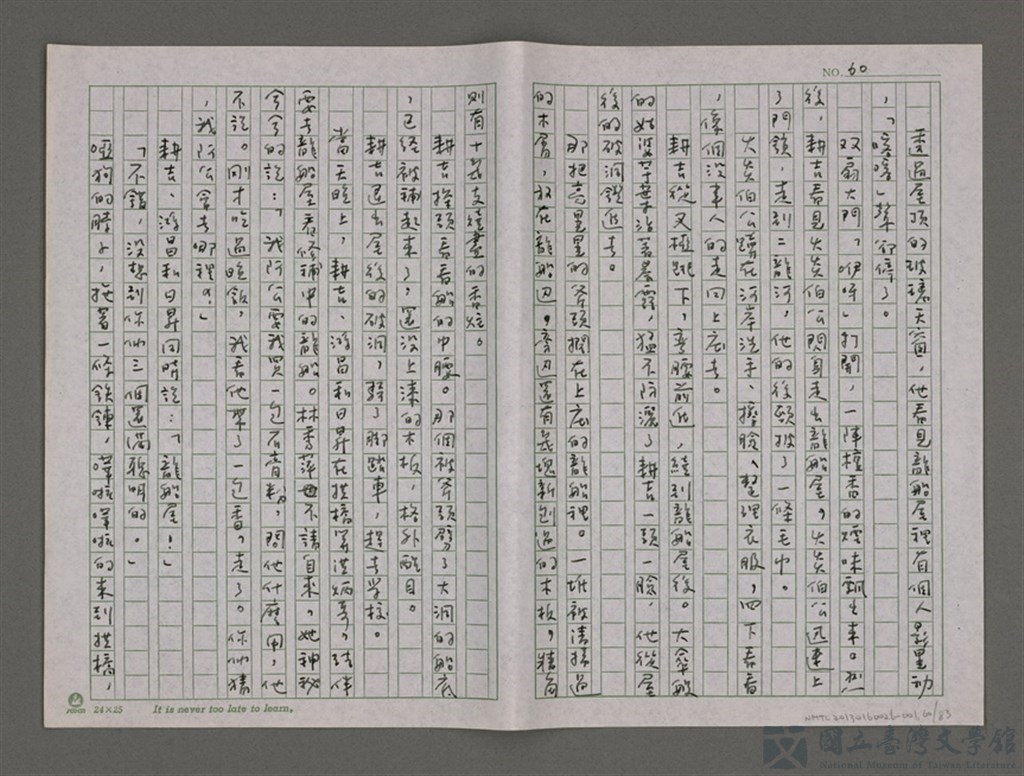 NO. 60
透過屋頂的玻璃天窗，他看見龍船屋裡有個人影晃動
，「嗦嗦」聲卻停了。
双扇大門，「咿呀」打開，一陣檀香的煙味飄出來。然
後，耕吉看見火炎伯公閃身走出龍船屋，火炎伯公迅速上
了門鎖，走到二龍河，他的後頸披了一條毛巾。
火炎伯公蹲在河岸洗手、擦臉、整理衣服，四下看看
，像個沒事人的走回上底去。
耕吉從叉極跳下，彎腰前進，繞到龍船屋後。大傘般
的姑婆芋葉沾著晨露，猛不防灑了耕吉一頭一臉，他從屋
後的破洞鑽進去。
那把亮晃晃的斧頭擱在上底的龍船裡。一堆被清掃過
的木屑，放在龍船邊，旁邊還有幾塊新刨過的木板，牆角
則有十幾支燒盡的香炷。
耕吉探頭看看船的中腰。那個被斧頭劈了大洞的船底
，已經被補起來了，還沒上漆的木板，格外醒目。
耕吉退出屋後的破洞，騎了腳踏車，趕去學校。
當天晚上，耕吉、鴻昌和日昇在拱橋等洪炳哥，結伴
要去龍船屋看修補中的龍船。林秀萍也不請自來，她神秘
兮兮的說：「我阿公要我買一包石膏粉，問他什麼用，他
不說。剛才吃過晚飯，我看他帶了一包香，走了。你們猜
，我阿公拿去哪裡？」
耕吉、鴻昌和日昇同時說：「龍船屋！」
「不錯，沒想到你們三個還滿聰明的。」
啞狗的脖子，拖著一條鐵鍊，嘩啦嘩啦的來到拱橋，
24×25
It is never too late to learn,
NMTL20130160026-001,60/83
國立臺灣文學館
National Museum of Taiwan Literature